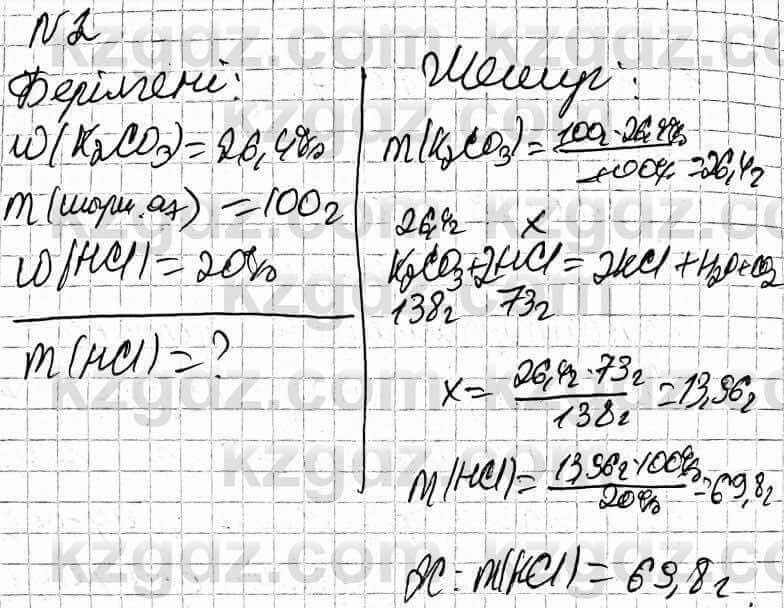 N2
Берілгені:
W(K₂CO₃)=26,4%
m(шөрм.аз)=100г
W(HCl)=20%
m(HCl)=?
Шешуі:
m(K₂CO₃)=100г·26,4%/100%=26,4г
26,4г x
K₂CO₃+2HCl=2KCl+H₂O+CO₂
138г 73г
x=26,4г·73г/138г=13,96г
m(HCl)=13,96г·100%/20%=69,8г
Ж: m(HCl)=69,8г.
kzgdz.com